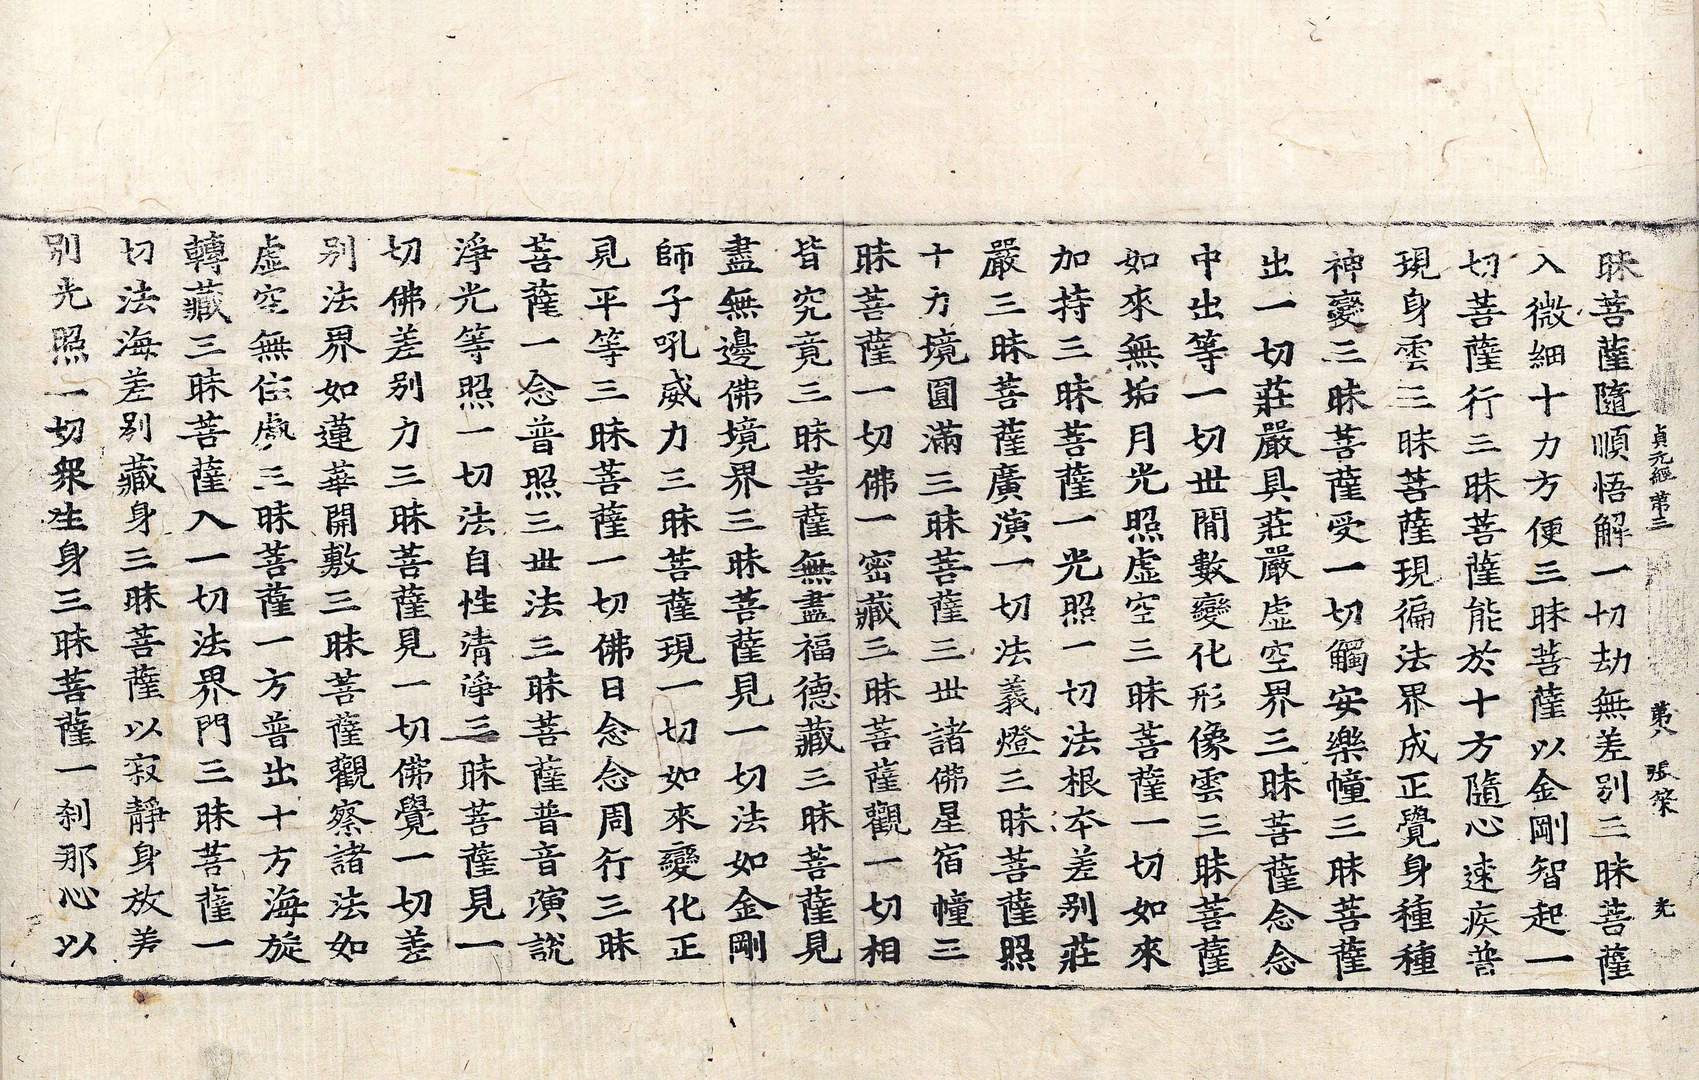 貞元經苐三 苐八 張 光
昧菩薩隨順悟解一切劫無差別三昧菩薩
入微細十力方便三昧菩薩以金剛智起一
切菩薩行三昧菩薩能於十方隨心速疾普
現身雲三昧菩薩現徧法界成正覺身種種
神變三昧菩薩受一切觸安樂幢三昧菩薩
出一切莊嚴具莊嚴虛空界三昧菩薩念念
中出等一切世閒數變化形像雲三昧菩薩
如來無垢月光照虛空三昧菩薩一切如來
加持三昧菩薩一光照一切法根本差別莊
嚴三昧菩薩廣演一切法義燈三昧菩薩照
十力境圓滿三昧菩薩三世諸佛星宿幢三
昧菩薩一切佛一密藏三昧菩薩觀一切相
皆究竟三昧菩薩無盡福德藏三昧菩薩見
盡無邊佛境界三昧菩薩見一切法如金剛
師子吼威力三昧菩薩現一切如來變化正
見平等三昧菩薩一切佛日念念周行三昧
菩薩一念普照三世法三昧菩薩普音演說
淨光等照一切法自性清淨三昧菩薩見一
切佛差別力三昧菩薩見一切佛覺一切差
別法界如蓮華開敷三昧菩薩觀察諸法如
虛空無住處三昧菩薩一方普出十方海旋
轉藏三昧菩薩入一切法界門三昧菩薩一
切法海差別藏身三昧菩薩以寂靜身放差
別光照一切衆生身三昧菩薩一剎那心以